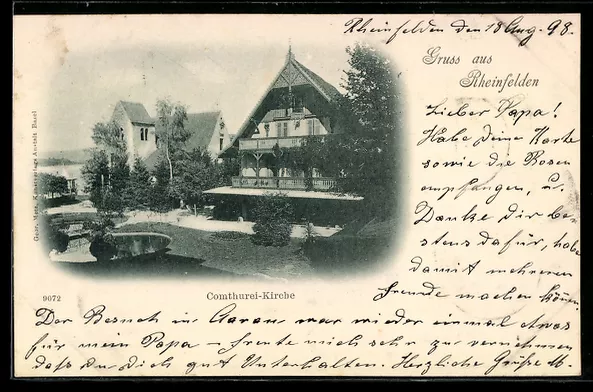 Rheinfelden den 18 Aug. 98.
Gruss aus
Rheinfelden
Lieber Papa!
Habe deine Karte
sowie die Rosen
empfangen, u.
Danke dir be-
stens dafür, habe
damit mehreren
Freude machen können.
Der Besuch in Aarau war wieder einmal etwas
für mein Papa – freute mich sehr zu vernehmen
dass du dich gut Unterhalten. Herzliche Grüße
Comthurei-Kirche
9072
Gebr. Metz, Kunstverlags-Anstalt Basel